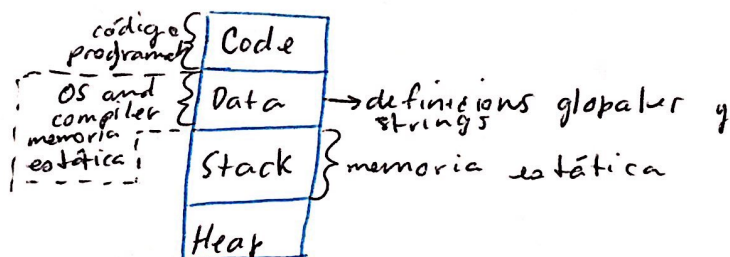 código
programa
Code
OS and
compiler
memoria
estática
Data
definicions globaler y
strings
Stack
memoria estática
Heap